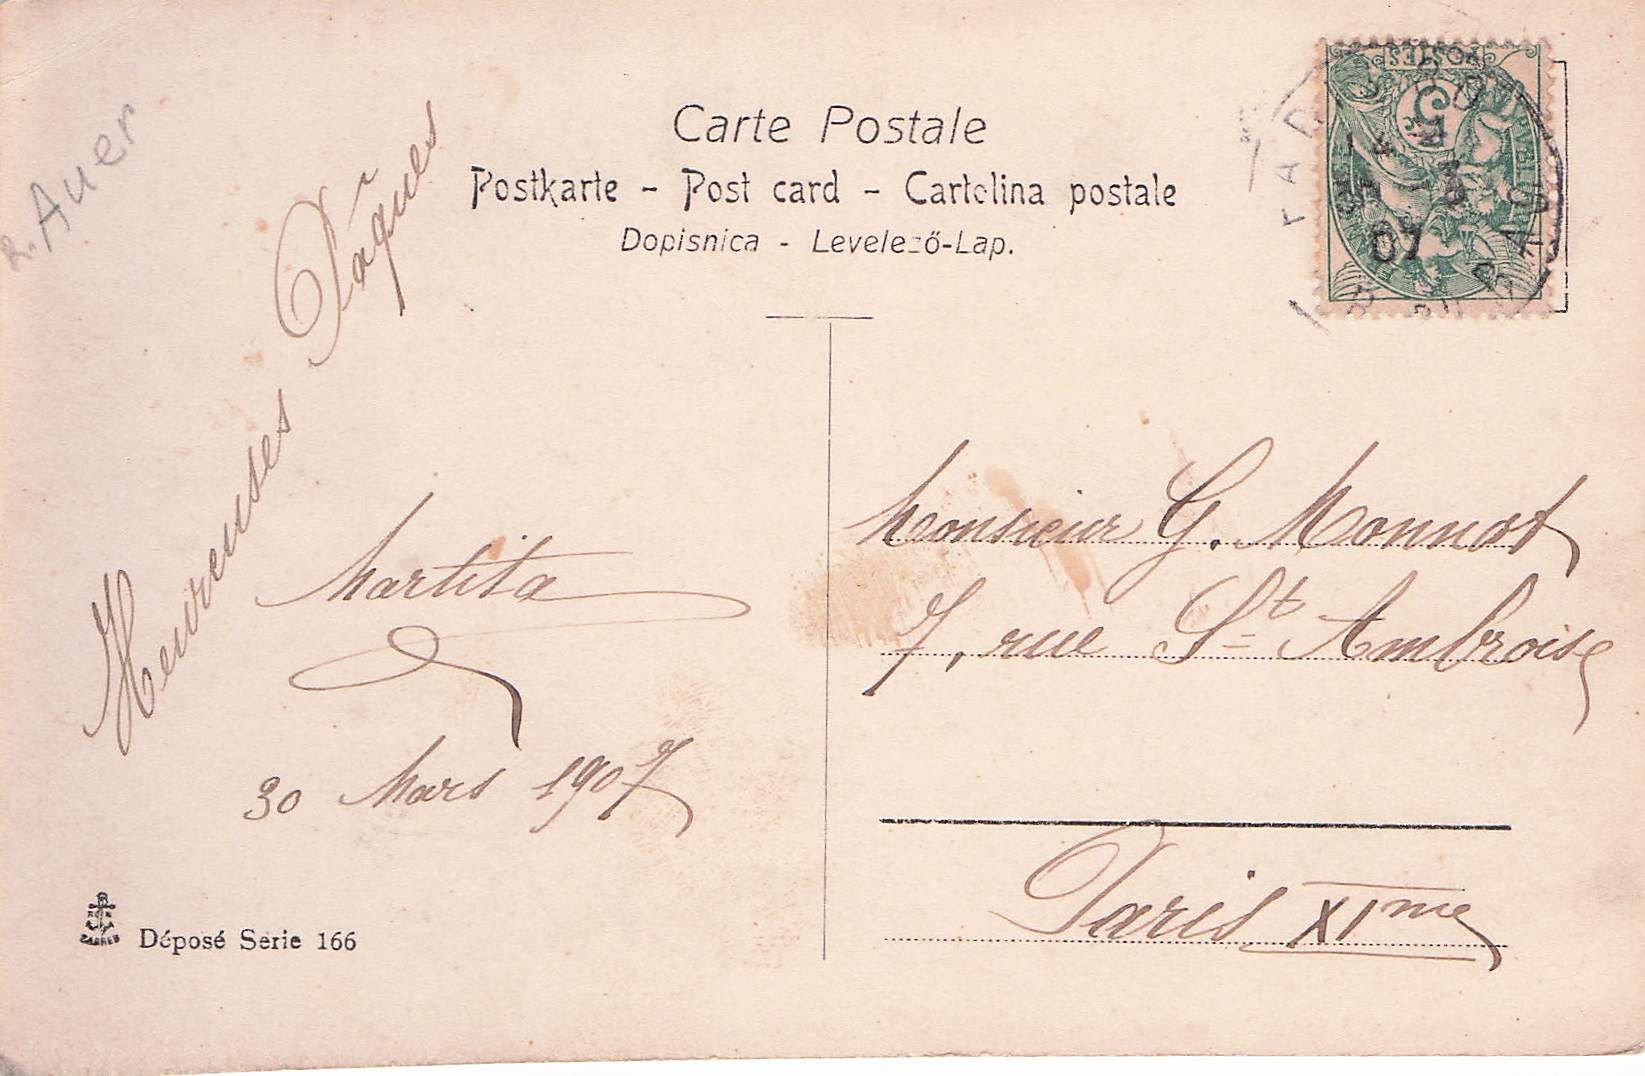 R. Auer
Carte Postale
Postkarte - Post card - Cartolina postale
Dopisnica - Levelező-Lap.
POSTES
5
07
Heureuses Pâques
Martita
30 Mars 1907
Monsieur G. Monnot
7, rue St Ambroise
Paris XIme
Déposé Serie 166